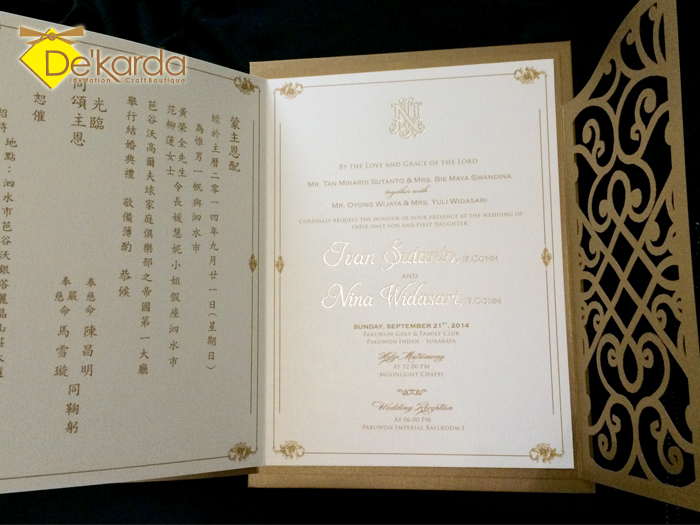 De'karda
Invitation Craft Boutique
蒙主恩配
經於主曆二零一四年九月廿一日(星期日)
為惟男一帆與泗水市
黃榮金先生
范柳蓮女士
令長媛慧妮小姐假座泗水市
芭谷沃高爾夫球家庭俱樂部之帝國第一大廳
舉行結婚典禮 敬備薄酌 恭候
光臨
同頌主恩
恕催
奉慈命 陳昌明
嚴
奉慈命 馬雪璇
同鞠躬
招待 地點:泗水市芭谷沃銀
N
BY THE LOVE AND GRACE OF THE LORD
MR. TAN MINARDI SUTANTO & MRS. BIE MAYA SWANDINA
together with
MR. OYONG WIJAYA & MRS. YULI WIDASARI
CORDIALLY REQUEST THE HONOUR OF YOUR PRESENCE AT THE WEDDING OF
THEIR ONLY SON AND FIRST DAUGHTER
Ivan Sutanto, B.COMM
AND
Nina Widasari, B.COMM
SUNDAY, SEPTEMBER 21ST, 2014
PAKUWON GOLF & FAMILY CLUB
PAKUWON INDAH - SURABAYA
Holy Matrimony
AT 12.00 PM
MOONLIGHT CHAPEL
Wedding Reception
AT 06.00 PM
PAKUWON IMPERIAL BALLROOM I